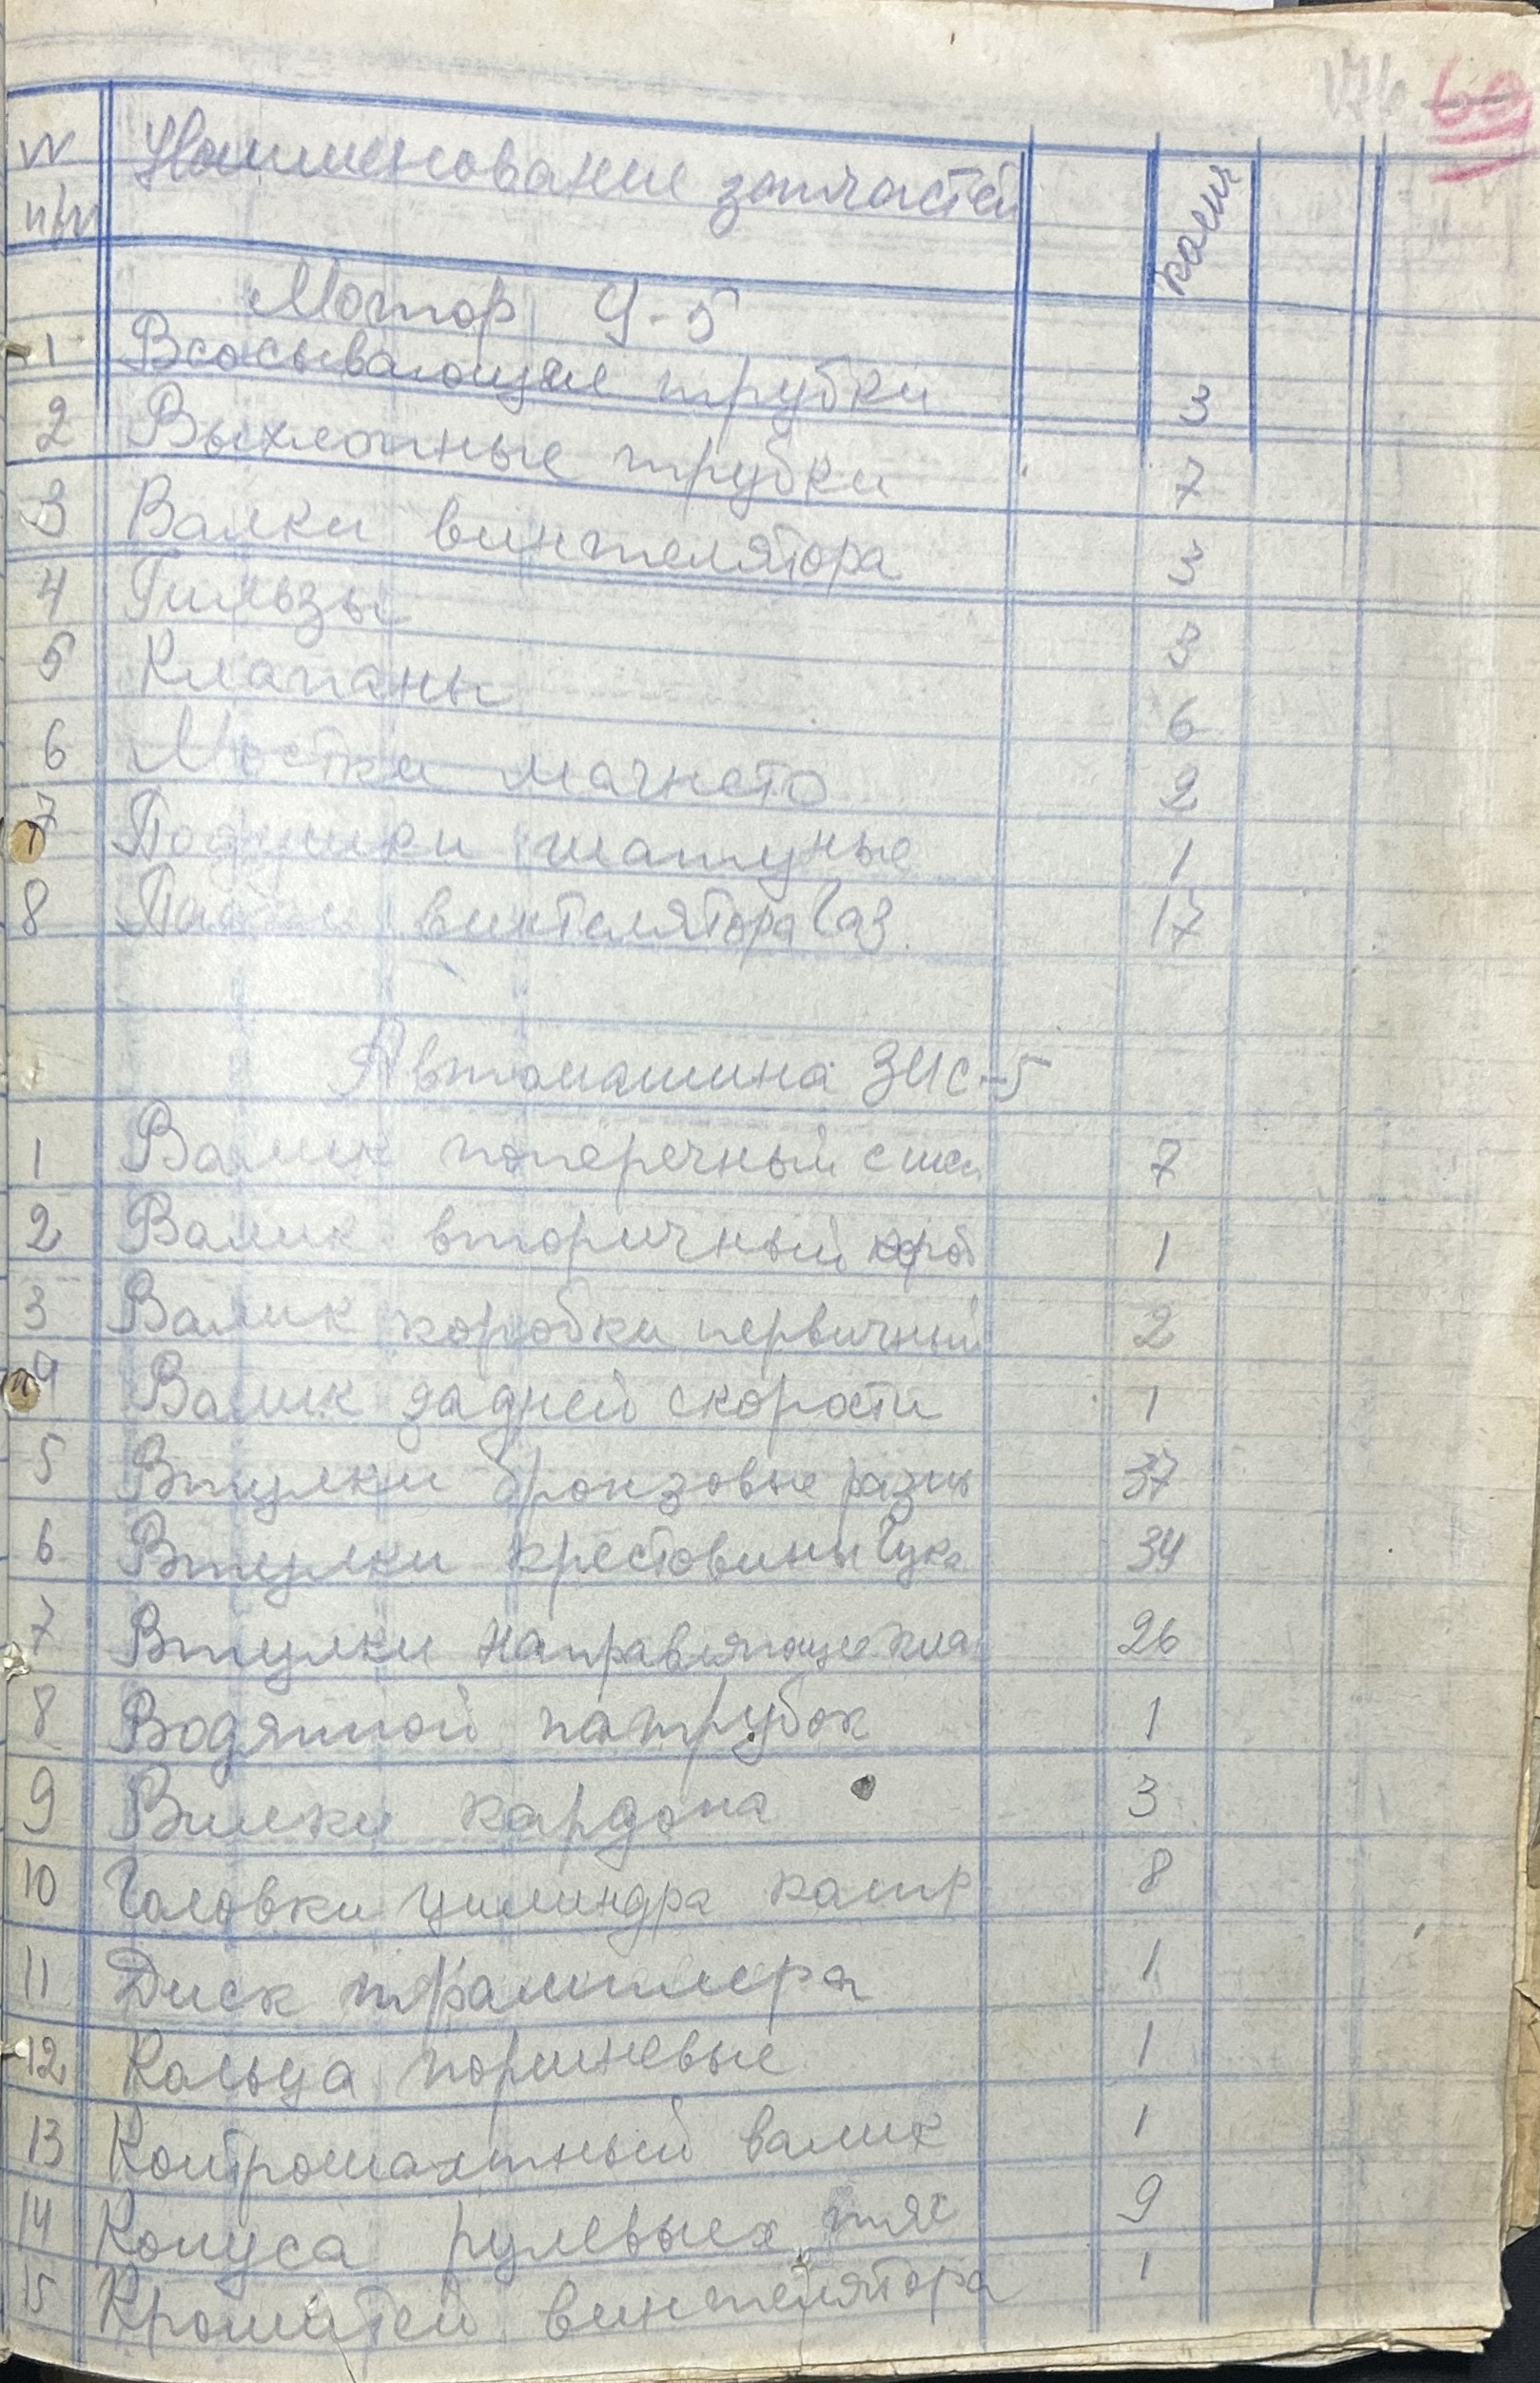 176 60
№ Наименование запчастей колич
п/п
Мотор У-5
1 Всасывающие трубки 3
2 Выхлопные трубки 7
3 Валки винтелятора 3
4 Гильзы 3
5 Клапаны 6
6 Мостки магнето 2
7 Подушки шатуные 1
8 винтелятора Газ. 17
Автомашина ЗИС-5
1 Валик поперечный с шес 7
2 Валик вторичный короб 1
3 Валик коробки первичный 2
4 Валик задней скорости 1
5 Втулки бронзовые разны 37
6 Втулки крестовины Гука 34
7 Втулки направляющие кла 26
8 Водянной патрубок 1
9 Вилки кардона 3
10 Головки цилиндра 8
11 Диск трамплера 1
12 Кольца поршневые 1
13 Контрошахтный валик 1
14 Конуса рулевых тяг 9
15 Кронштей винтелятора 1